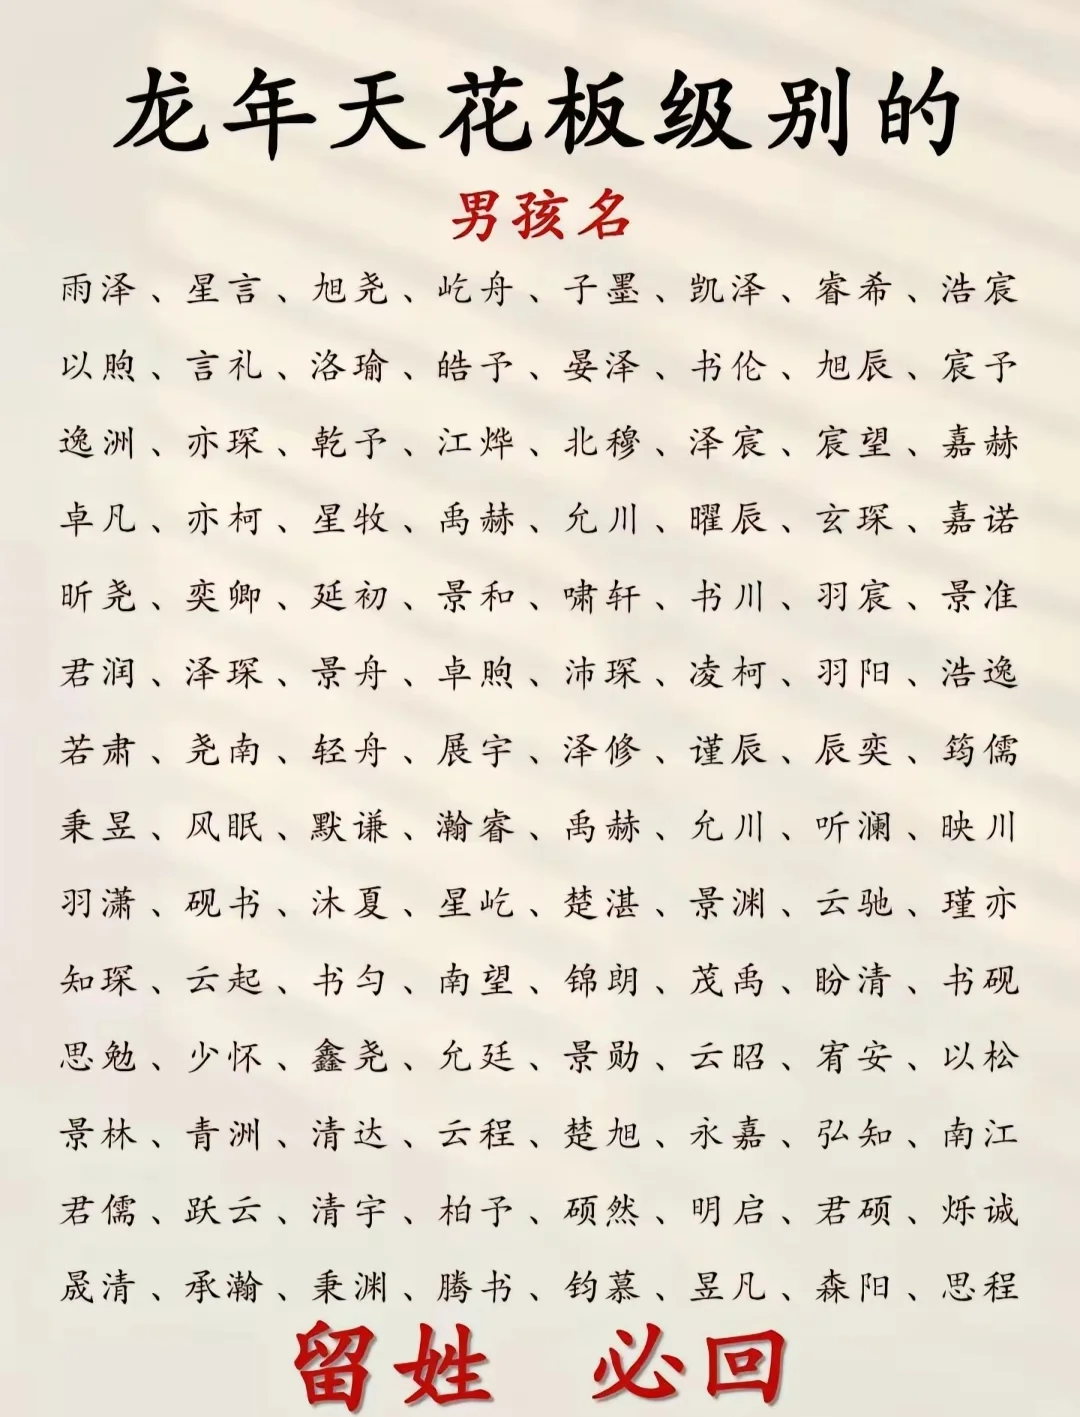 龙年天花板级别的
男孩名
雨泽、星言、旭尧、屹舟、子墨、凯泽、睿希、浩宸
以煦、言礼、洛瑜、皓予、晏泽、书伦、旭辰、宸予
逸洲、亦琛、乾予、江烨、北穆、泽宸、宸望、嘉赫
卓凡、亦柯、星牧、禹赫、允川、曜辰、玄琛、嘉诺
昕尧、奕卿、延初、景和、啸轩、书川、羽宸、景准
君润、泽琛、景舟、卓煦、沛琛、凌柯、羽阳、浩逸
若肃、尧南、轻舟、展宇、泽修、谨辰、辰奕、筠儒
秉昱、风眠、默谦、瀚睿、禹赫、允川、听澜、映川
羽潇、砚书、沐夏、星屹、楚湛、景渊、云驰、瑾亦
知琛、云起、书匀、南望、锦朗、茂禹、盼清、书砚
思勉、少怀、鑫尧、允廷、景勋、云昭、宥安、以松
景林、青洲、清达、云程、楚旭、永嘉、弘知、南江
君儒、跃云、清宇、柏予、硕然、明启、君硕、烁诚
晟清、承瀚、秉渊、腾书、钧慕、昱凡、森阳、思程
留姓 必回